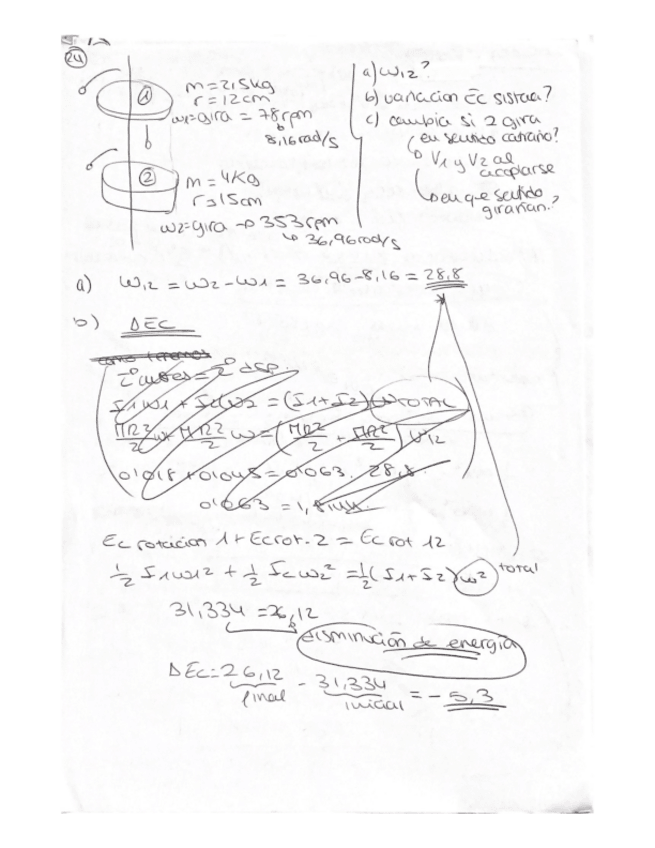 24
1
m = 2,5kg
r = 12cm
w1=gira = 78rpm
8,16rad/s
2
m = 4Kg
r = 15cm
w2=gira → 353rpm
↳ 36,96rad/s
a) w12?
b) variacion Ec sistema?
c) cambia si 2 gira
en sentido contrario?
V1 y V2 al
acoplarse
en que sentido
girarian?
a) W12 = w2 - w1 = 36,96-8,16 = 28,8
b) ΔEC
antes = desp.
I1w1 + I2w2 = (I1+I2) WTOTAL
MR2/2 w + MR2/2 w = (MR2/2 + MR2/2) W12
0'018 + 0'045 = 0'063 . 28,8
0'063 = 1,814
Ec rotacion 1 + Ec rot. 2 = Ec rot 12
1/2 I1w12 + 1/2 I2w2² = 1/2 (I1+I2) w² total
31,334 = 26,12
disminución de energía
ΔEc = 26,12 - 31,334 = - 5,3
final inicial